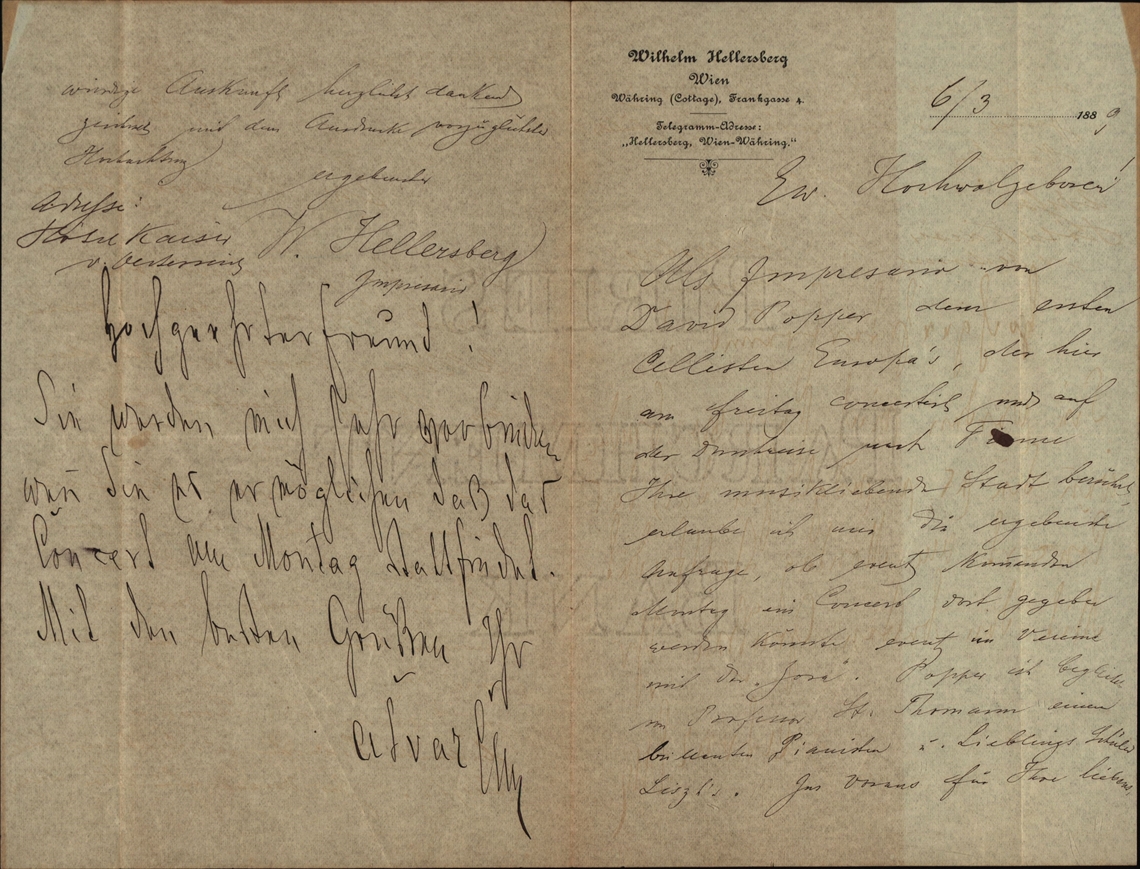 Wilhelm Hellersberg
Wien
Währing (Cottage), Frankgasse 4.
Telegramm-Adresse:
„Hellersberg, Wien-Währing."
6/3 1889
Ew. Hochwolgeboren!
Als Impresario von
David Popper dem ersten
Cellisten Europa's, der hier
am Freitag concertirt und auf
der Durchreise nach Fiume
Ihre musikliebende Stadt berührt,
erlaube ich mir die ergebenste
Anfrage, ob event kom̄enden
Montag ein Concert dort gegeben
werden könnte event im Vereine
mit der
Popper ist begleitet
v Professor St. Thomann einem
brillanten Pianisten u. Lieblings Schüler
Liszt's. Im Voraus für Ihre liebens
würdige Auskunft herzlichst dankend
zeichnet mit dem Ausdrucke vorzüglichster
Hochachtung
ergebenster
W. Hellersberg
Impresario
Adresse:
Hotel Kaiser
v. Oesterreich
Hochgeehrter Freund!
Sie werden mich sehr verbinden
wen̄ Sie es ermöglichen daß das
Concert am Montag stattfindet.
Mit den besten Grüßen Ihr